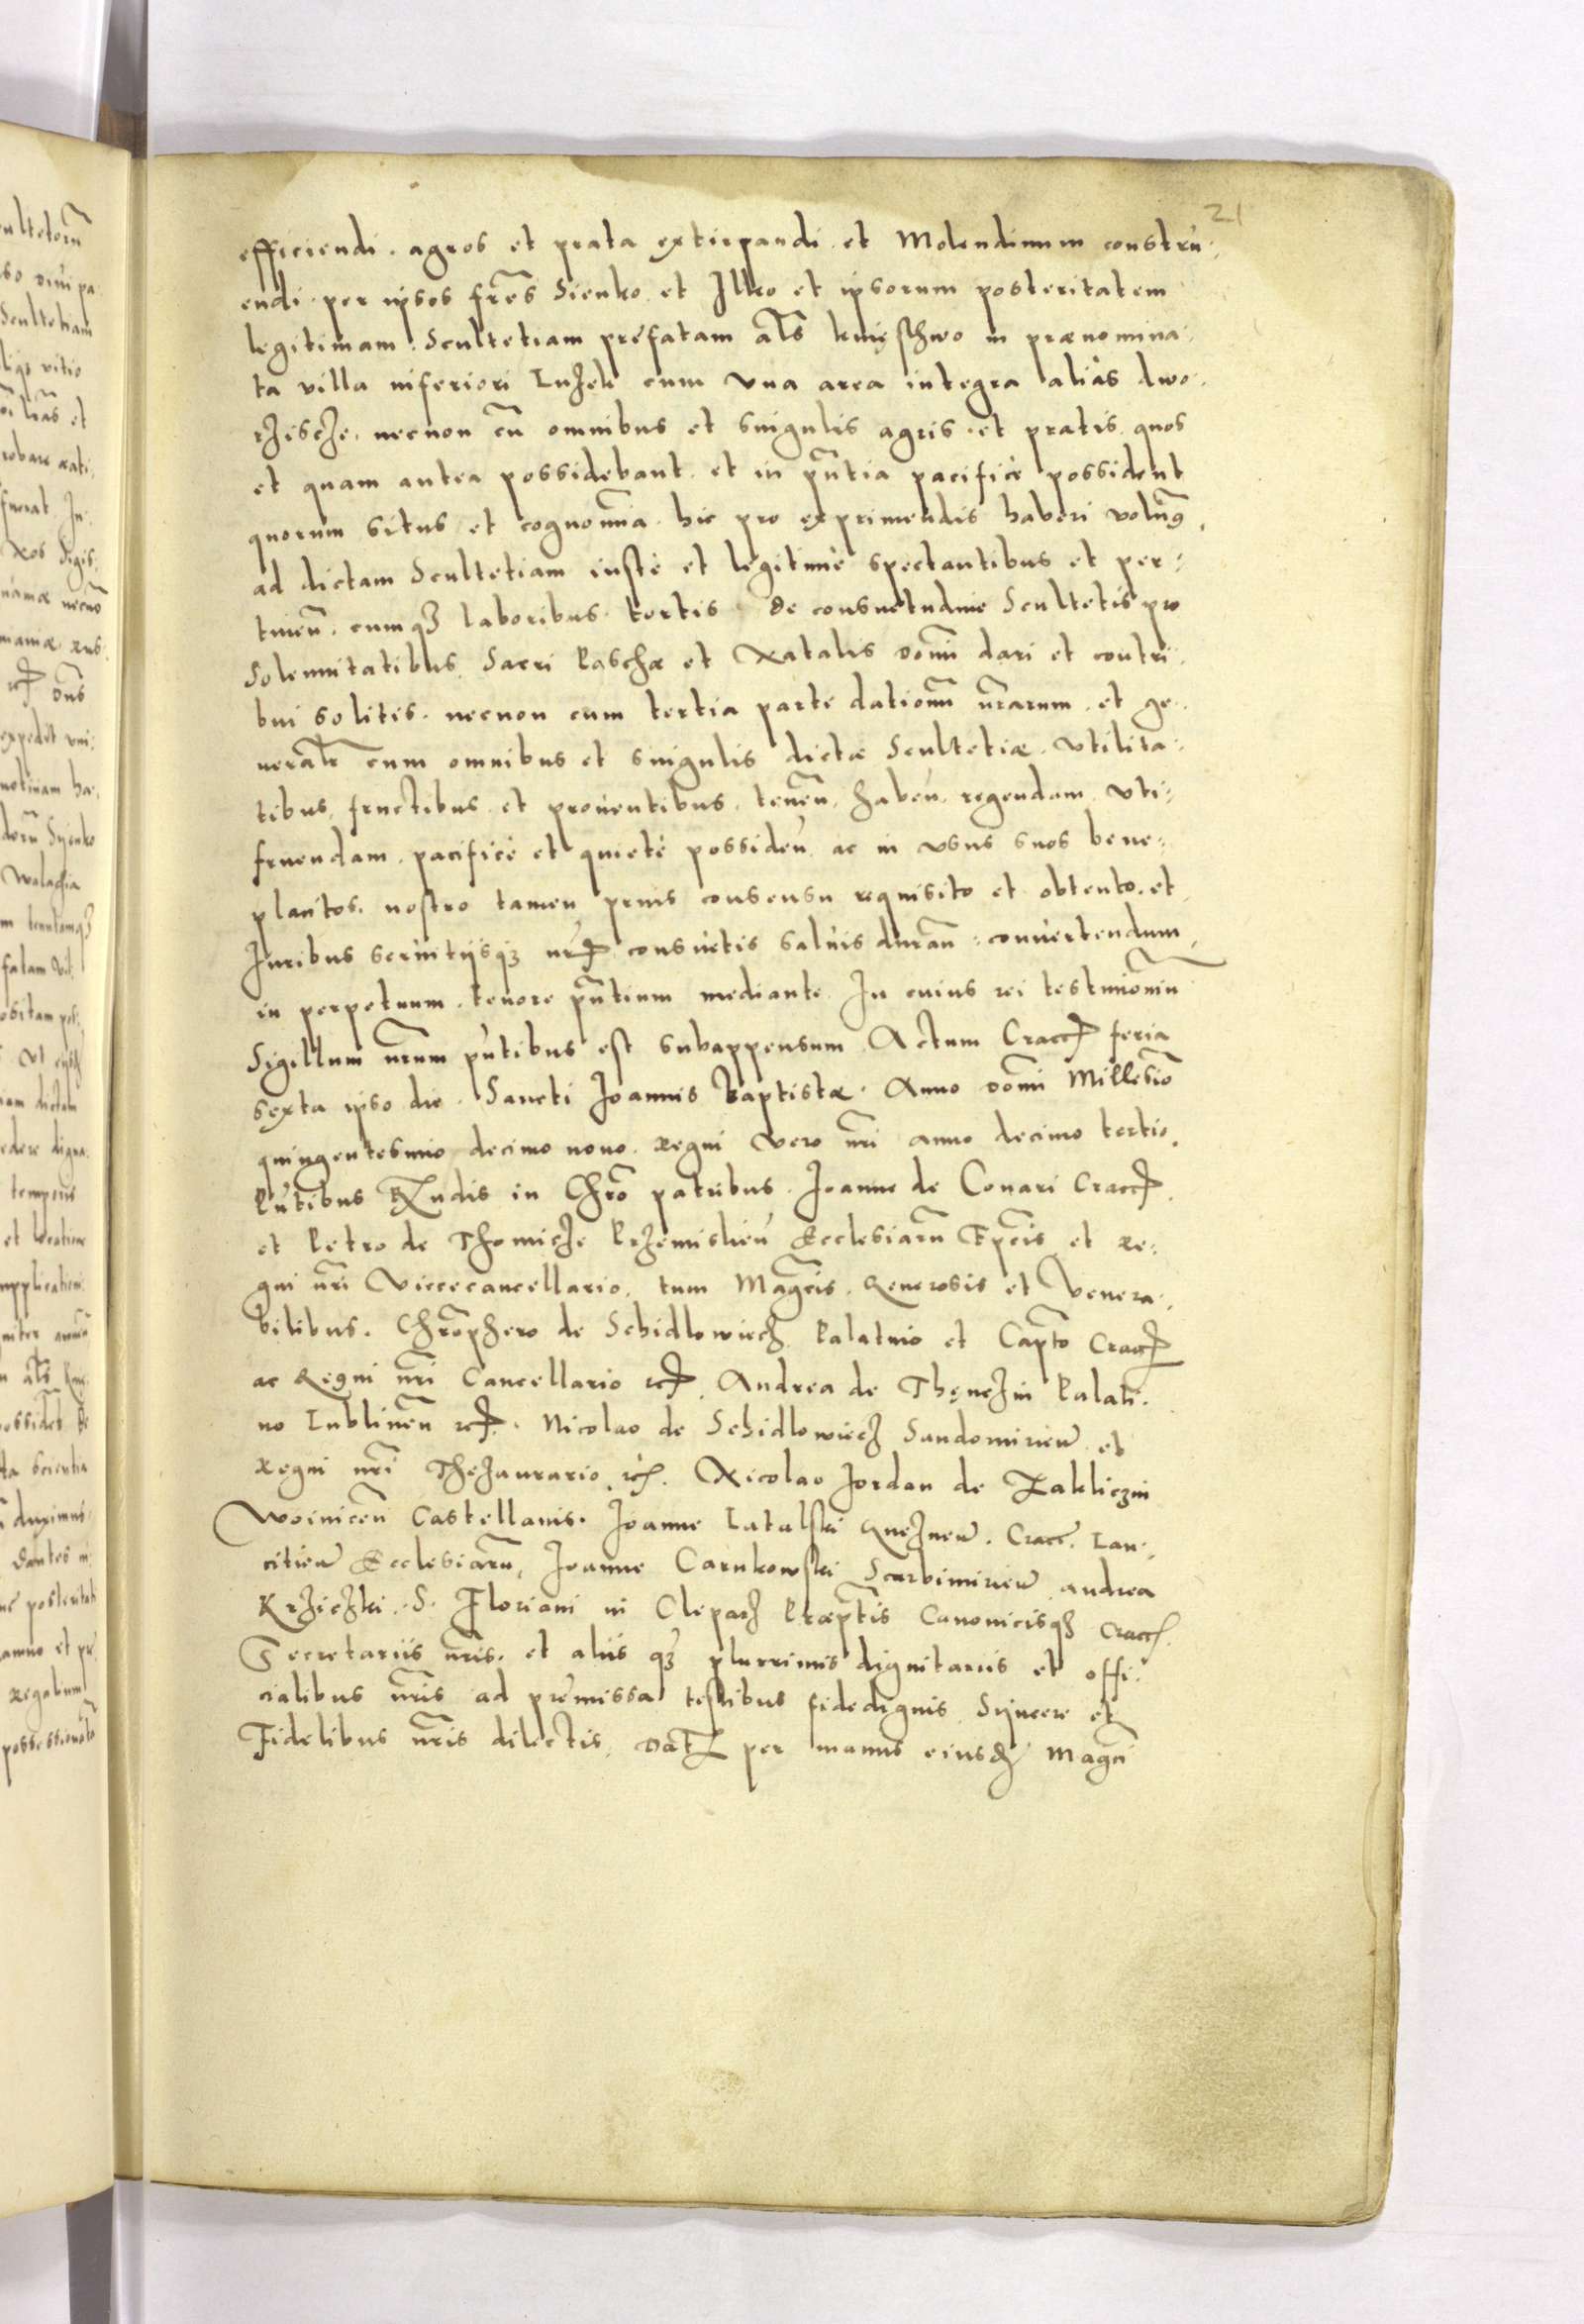 21
efficiendi. agros et prata extirpandi et Molendinum constru:
endi. per ipsos fr̃es Sienko et Ilko et ipsorum posteritatem
legitimam. Scultetiam prefatam al̃s knięstwo in prænomina:
ta villa inferiori Luzek cum vna area integra aliàs dwo:
rziscze, necnon cũ omnibus et singulis agris et pratis quos
et quam antea possidebant et in p̃ntia pacificè possident
quorum situs et cognom̃ia hic pro exprimendis haberi volum9
ad dictam Scultetiam iustè et legitimè spectantibus et per:
tineñ. cumq3 laboribus tertis de consuetudine Scultetis pro
solennitatibus Sacri Paschæ et Natalis Domĩ dari et contri:
bui solitis. necnon cum tertia parte dationũ nr̃arum et ge:
neralr̃ cum omnibus et singulis dictæ Scultetiæ vtilita:
tibus, fructibus et prouentibus, teneñ. habeñ. regendam vti:
fruendam. pacificè et quietè possideñ ac in vsus suos bene:
placitos. nostro tamen prius consensu requisito et obtento. et
Iuribus seruitijsq3 nr̃is consuetis saluis duraň: conuertendum,
in perpetuum. tenore p̃ntium mediante In cuius rei testimoniũ
Sigillum nr̃um p̃ntibus est subappensum Actum Cracc feria
sexta ipso die. Sancti Joannis Baptistæ. Anno Domĩ Millesĩo
quingentesimo decimo nono. Regni vero nr̃i anno decimo tertio.
P̃ntibus Rñdis in Chr̃o patribus. Joanne de Conari Cracc
et Petro de Thomicze Przemislieñ Ecclesiarũ Ep̃cis et Re:
gni nr̃i Viccecancellario, tum Mag̃cis. Generosis et Venera:
bilibus. Chr̃ophero de Schidlowiecz Palatino et Cap̃to Cracc
ac Regni nr̃i Cancellario etc. Andrea de Thęnczin Palati:
no Lublineñ etc. Nicolao de Schidlowiecz Sandomirieñ et
Regni nr̃i Thezaurario etc. Nicolao Jordan de Zakliczin
Woiniceñ Castellanis. Joanne Latalski Gnezneñ. Cracc. Lan:
citieñ Ecclesiarũ, Joanne Carnkowski Scarbimirieñ andrea
Krziczki S. Floriani in Cleparz Præp̃tis Canonicisq3 Cracc.
Secretariis nr̃is. et aliis q3 plurrimis dignitariis et offi:
cialibus nr̃is ad premissa testibus fidedignis Syncere et
Fidelibus nr̃is dilectis, Dat per manus eiusd Magci